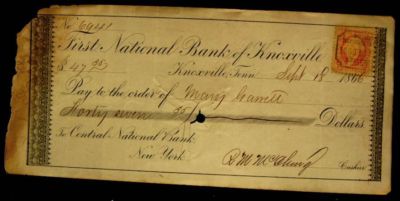 No. 6941
First National Bank of Knoxville
$47.95
Knoxville, Tenn Sept 18 1866
Pay to the order of Mary Garrett
Forty seven 95/ Dollars.
To Central National Bank
New York
Cashier